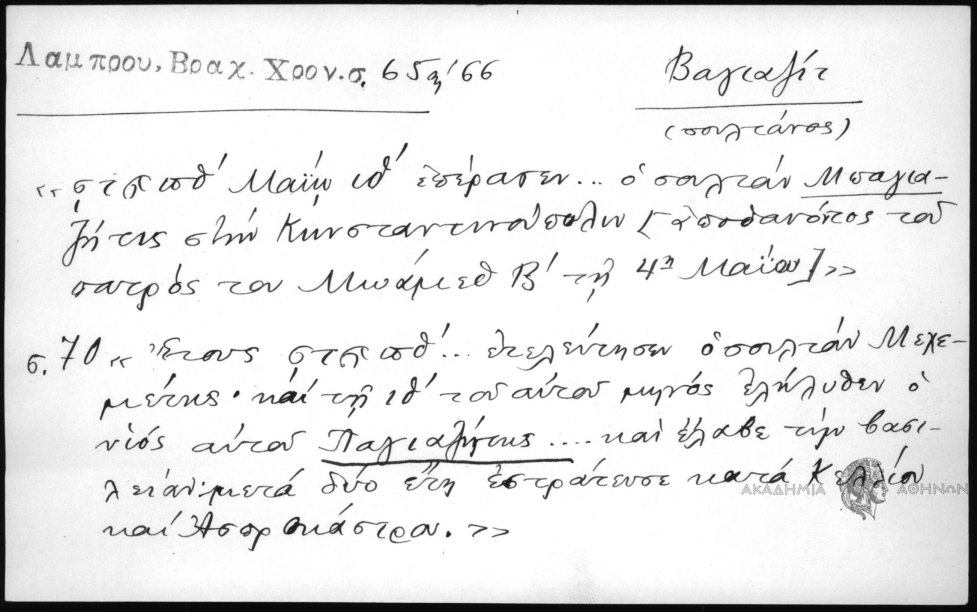 Λαμπρου, Βραχ. Χρον. σ. 65, 66
Βαγιαζίτ
(σουλτάνος)
«͵ϛϡπθ´ Μαΐῳ ιθ´ ἐπέρασεν... ὁ σουλτάν Μπαγια-
ζήτις στήν Κωνσταντινούπολιν [ἀποθανόντος τοῦ
πατρός του Μωάμεθ Β´ τῇ 4ῃ Μαΐου]»
σ. 70 « Ἔτους ͵ϛϡπθ´... ἐτελεύτησεν ὁ σουλτάν Μεχε-
μέτης· καί τῇ ιθ´ τοῦ αὐτοῦ μηνός ἐλήλυθεν ὁ
υἱός αὐτοῦ Παγιαζήτης .... καί ἔλαβε τήν βασι-
λείαν· μετά δύο ἔτη ἐστράτευσε κατά Κελλίου
ΑΚΑΔΗΜΙΑ ΑΘΗΝΩΝ
καί Ἀσπροκάστρου. »